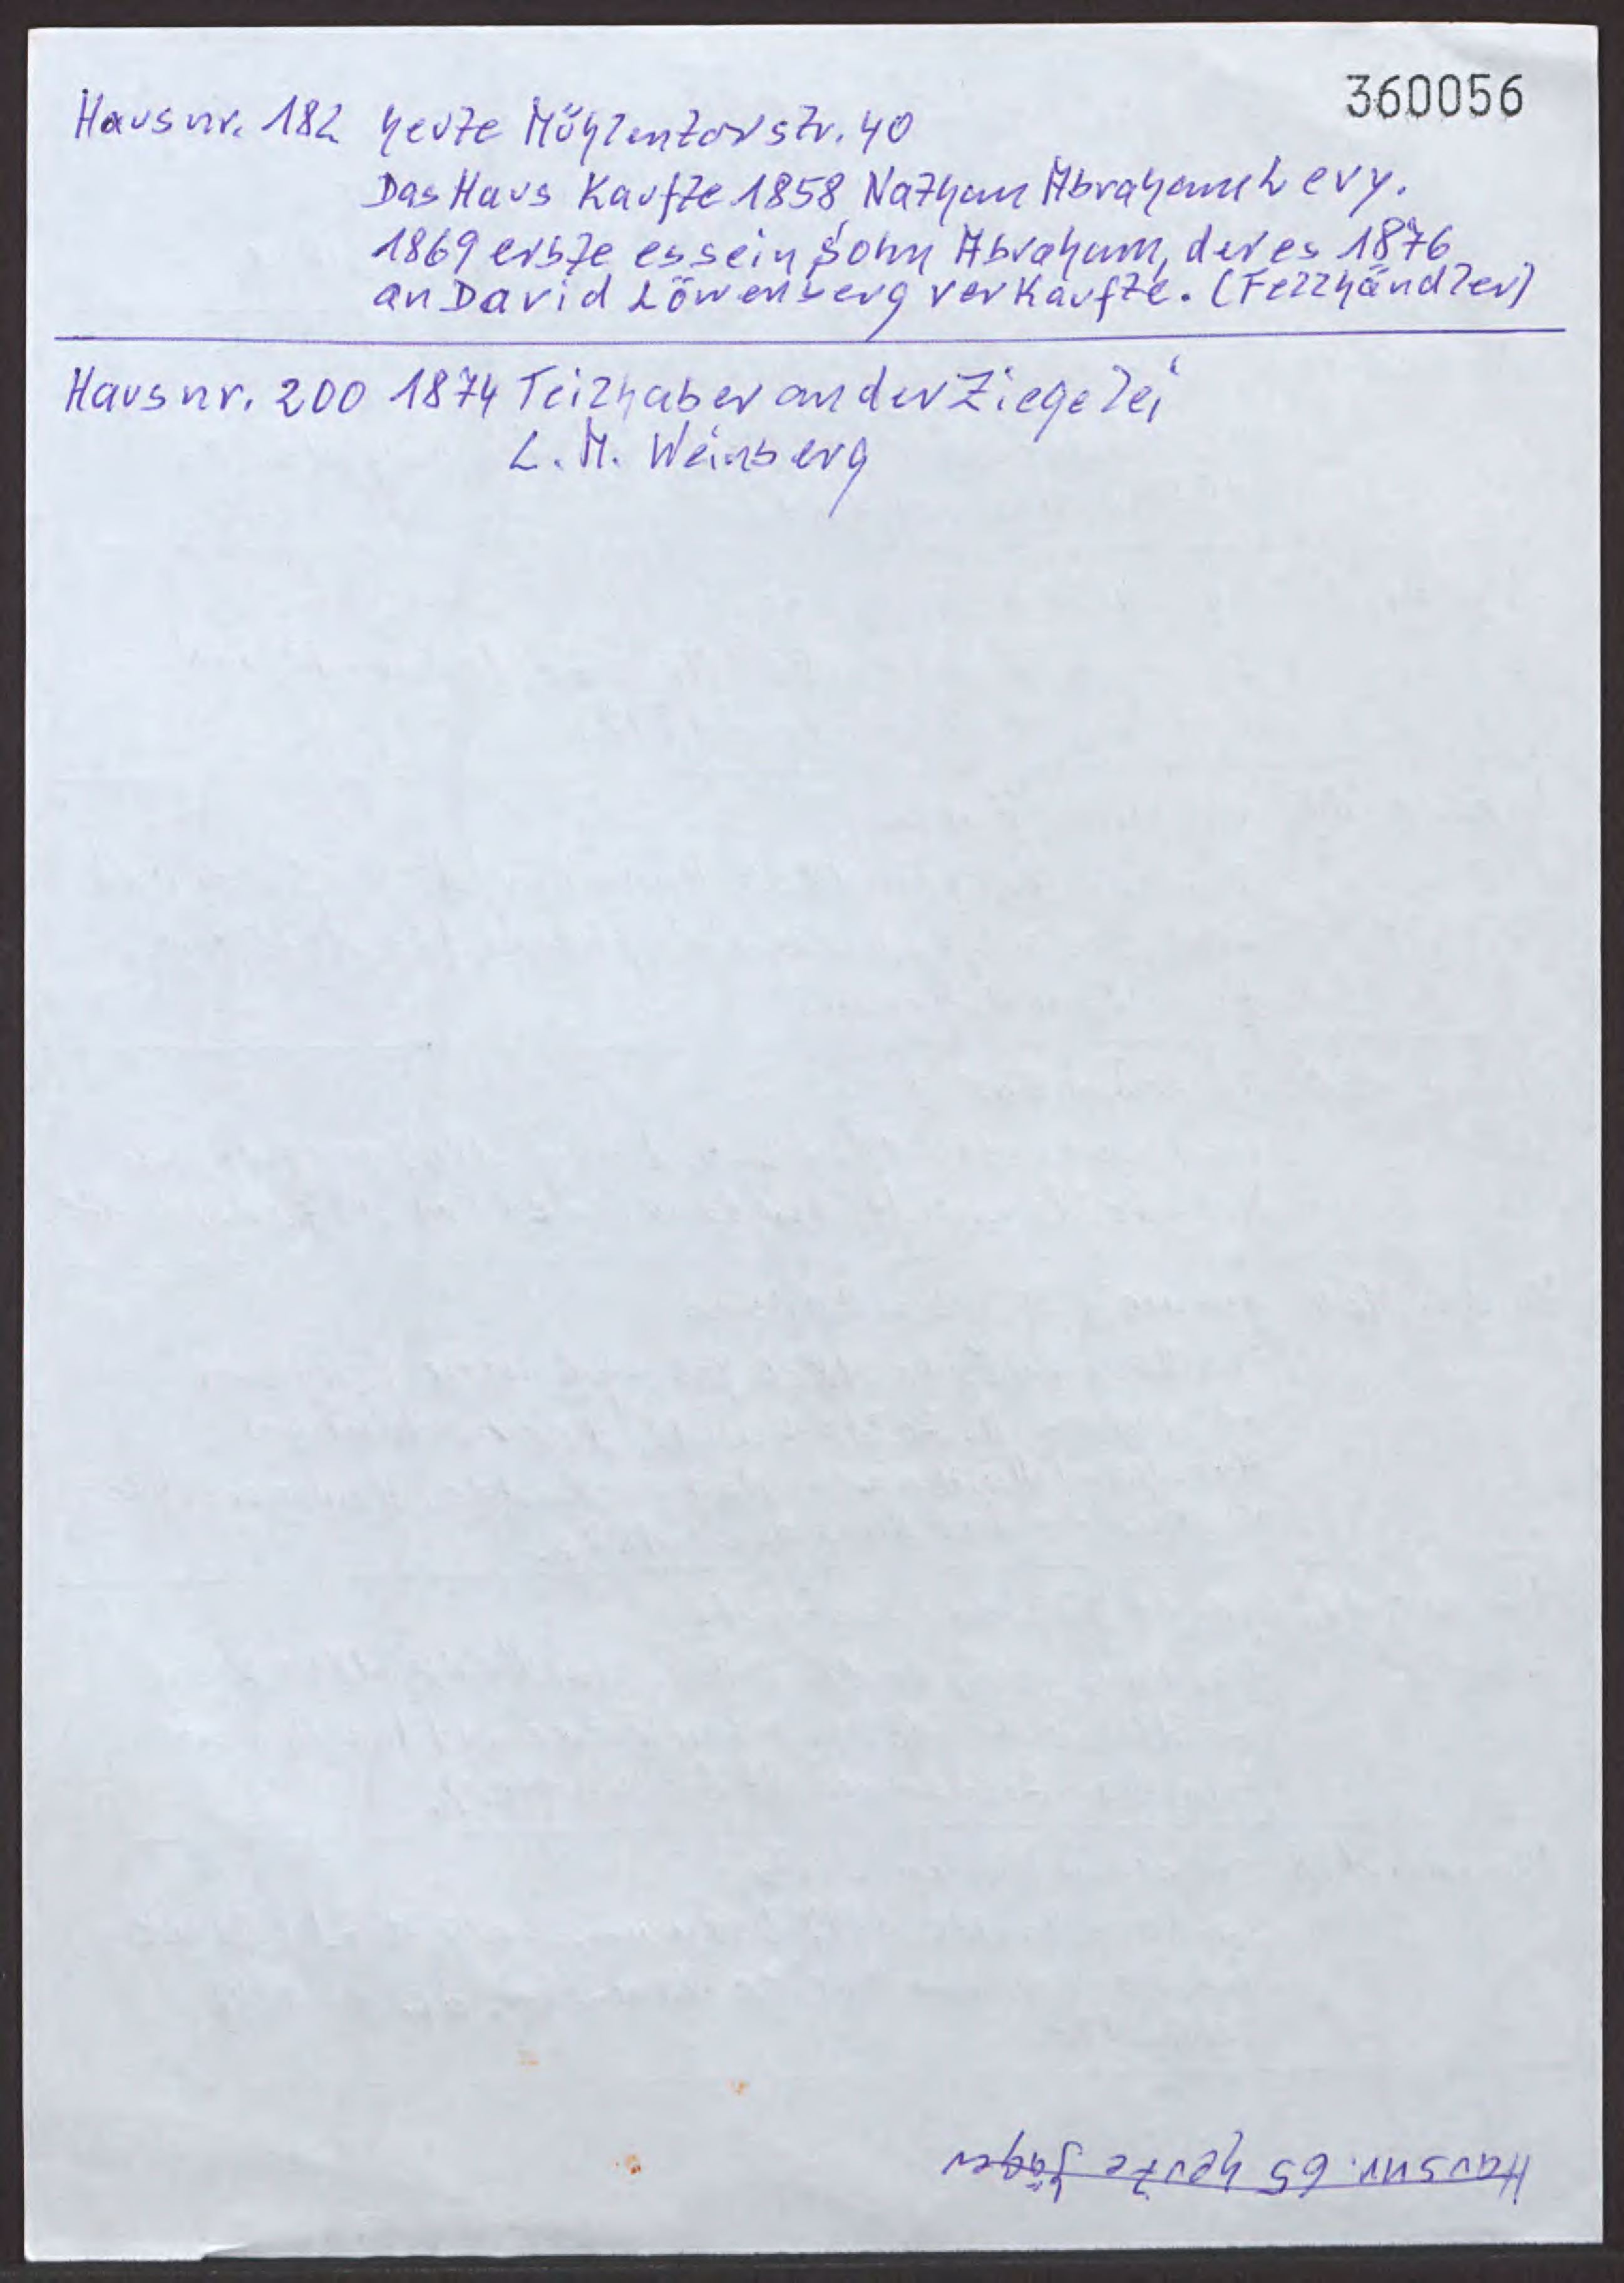 360056
Hausnr. 182 heute Mühlentorstr. 40
Das Haus Kaufte 1858 Nathan Abraham Levy.
1869 erbte es sein Sohn Abraham, der es 1876
an David Löwenberg verkaufte. (Fellhändler)
Hausnr. 200 1874 Teilhaber an der Ziegelei
L. M. Weinberg
Hausnr. 65 heute Jäger